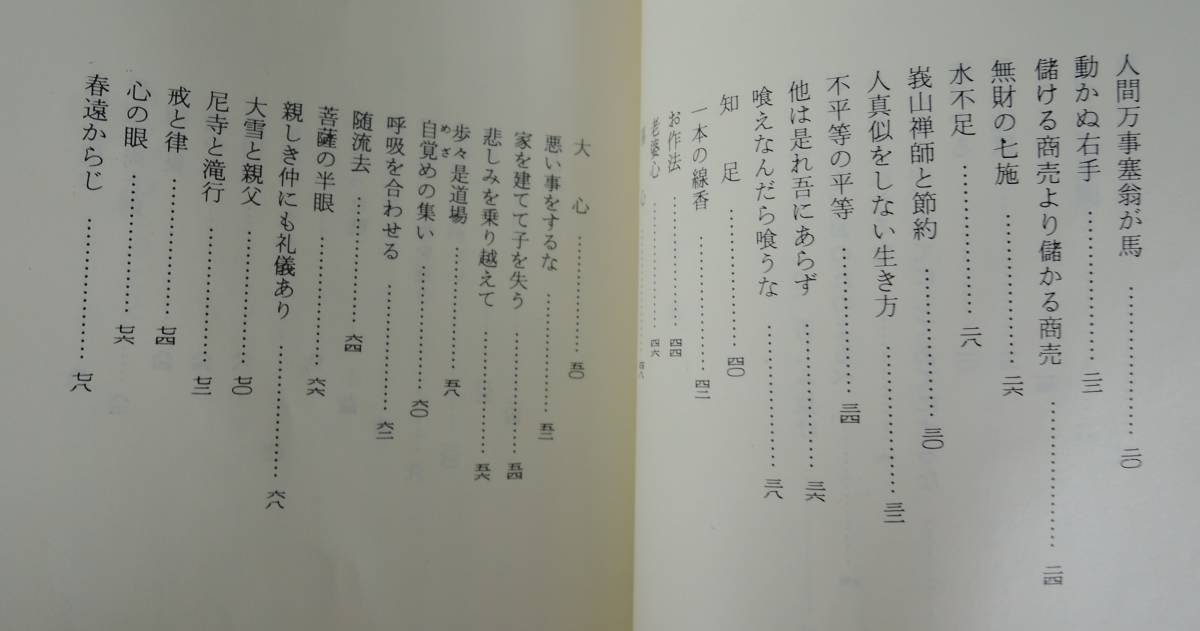 人間万事塞翁が馬 ………… 二〇
動かぬ右手 ………… 二二
儲ける商売より儲かる商売 ………… 二四
無財の七施 ………… 二六
水不足 ………… 二八
峩山禅師と節約 ………… 三〇
人真似をしない生き方 ………… 三二
不平等の平等 ………… 三四
他は是れ吾にあらず ………… 三六
喰えなんだら喰うな ………… 三八
知足 ………… 四〇
一本の線香 ………… 四二
お作法 ………… 四四
老婆心 ………… 四六
心 ………… 四八
大心 ………… 五〇
悪い事をするな ………… 五二
家を建てて子を失う ………… 五四
悲しみを乗り越えて ………… 五六
歩々是道場 ………… 五八
自覚めの集い ………… 六〇
めざ
呼吸を合わせる ………… 六二
随流去 ………… 六四
菩薩の半眼 ………… 六六
親しき仲にも礼儀あり ………… 六八
大雪と親父 ………… 七〇
尼寺と滝行 ………… 七二
戒と律 ………… 七四
心の眼 ………… 七六
春遠からじ ………… 七八